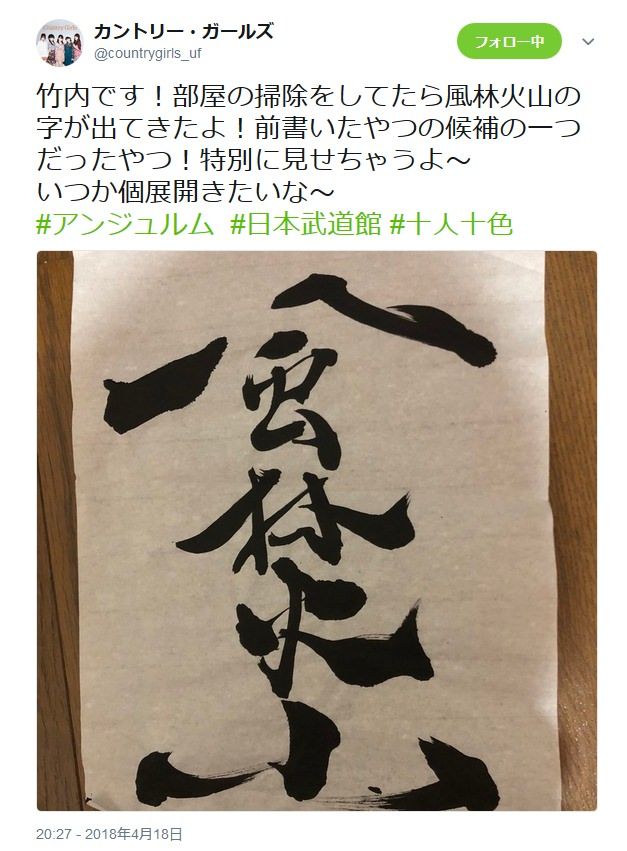 カントリー・ガールズ
@countrygirls_uf
フォロー中
竹内です！部屋の掃除をしてたら風林火山の
字が出てきたよ！前書いたやつの候補の一つ
だったやつ！特別に見せちゃうよ〜
いつか個展開きたいな〜
#アンジュルム #日本武道館 #十人十色
風
林
火
山
20:27 - 2018年4月18日